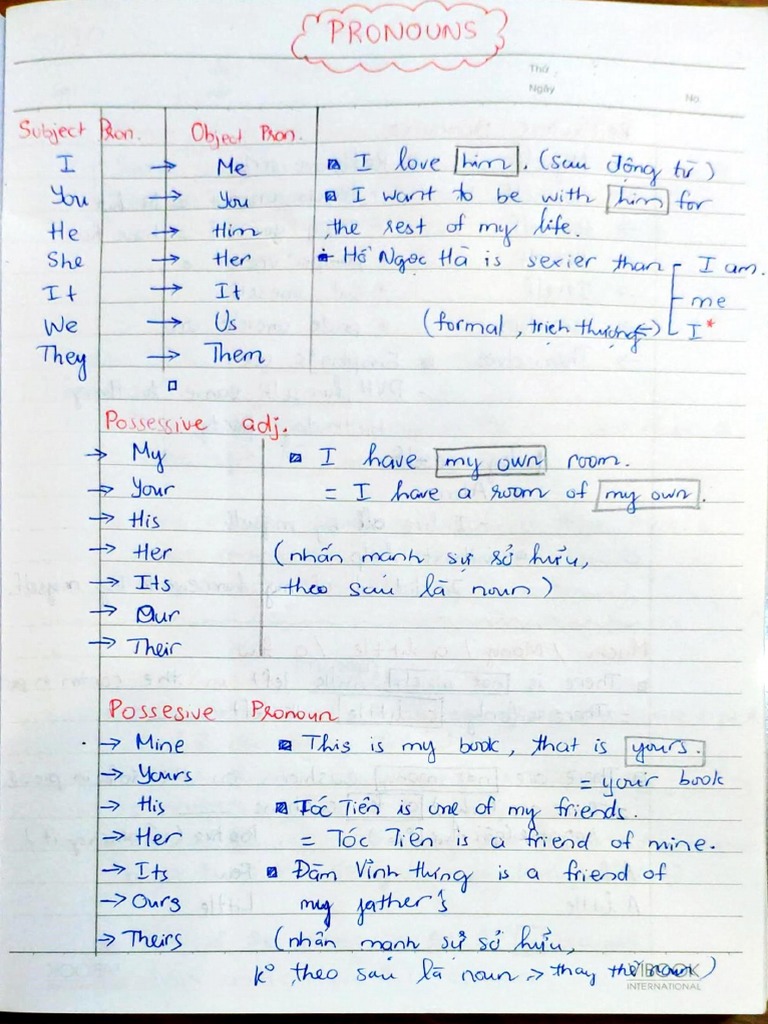 PRONOUNS
Thứ :
Ngày
No.
Subject Pron. Object Pron.
I → Me ▪ I love him. (sau động từ)
You → You ▪ I want to be with him for
He → Him the rest of my life.
She → Her Hồ Ngọc Hà is sexier than I am.
It → It me
We → Us (formal, trịch thượng ←) I*
They → Them
Possessive adj.
→ My ▪ I have my own room.
→ Your = I have a room of my own.
→ His
→ Her (nhấn mạnh sự sở hữu,
→ Its theo sau là noun)
→ Our
→ Their
Possesive Pronoun
→ Mine ▪ This is my book, that is yours.
→ Yours = your book
→ His ▪ Tóc Tiên is one of my friends.
→ Her = Tóc Tiên is a friend of mine.
→ Its ▪ Đàm Vĩnh Hưng is a friend of
→ Ours my father's
→ Theirs (nhấn mạnh sự sở hữu,
k° theo sau là noun → thay thế noun)
VIBOOK
INTERNATIONAL